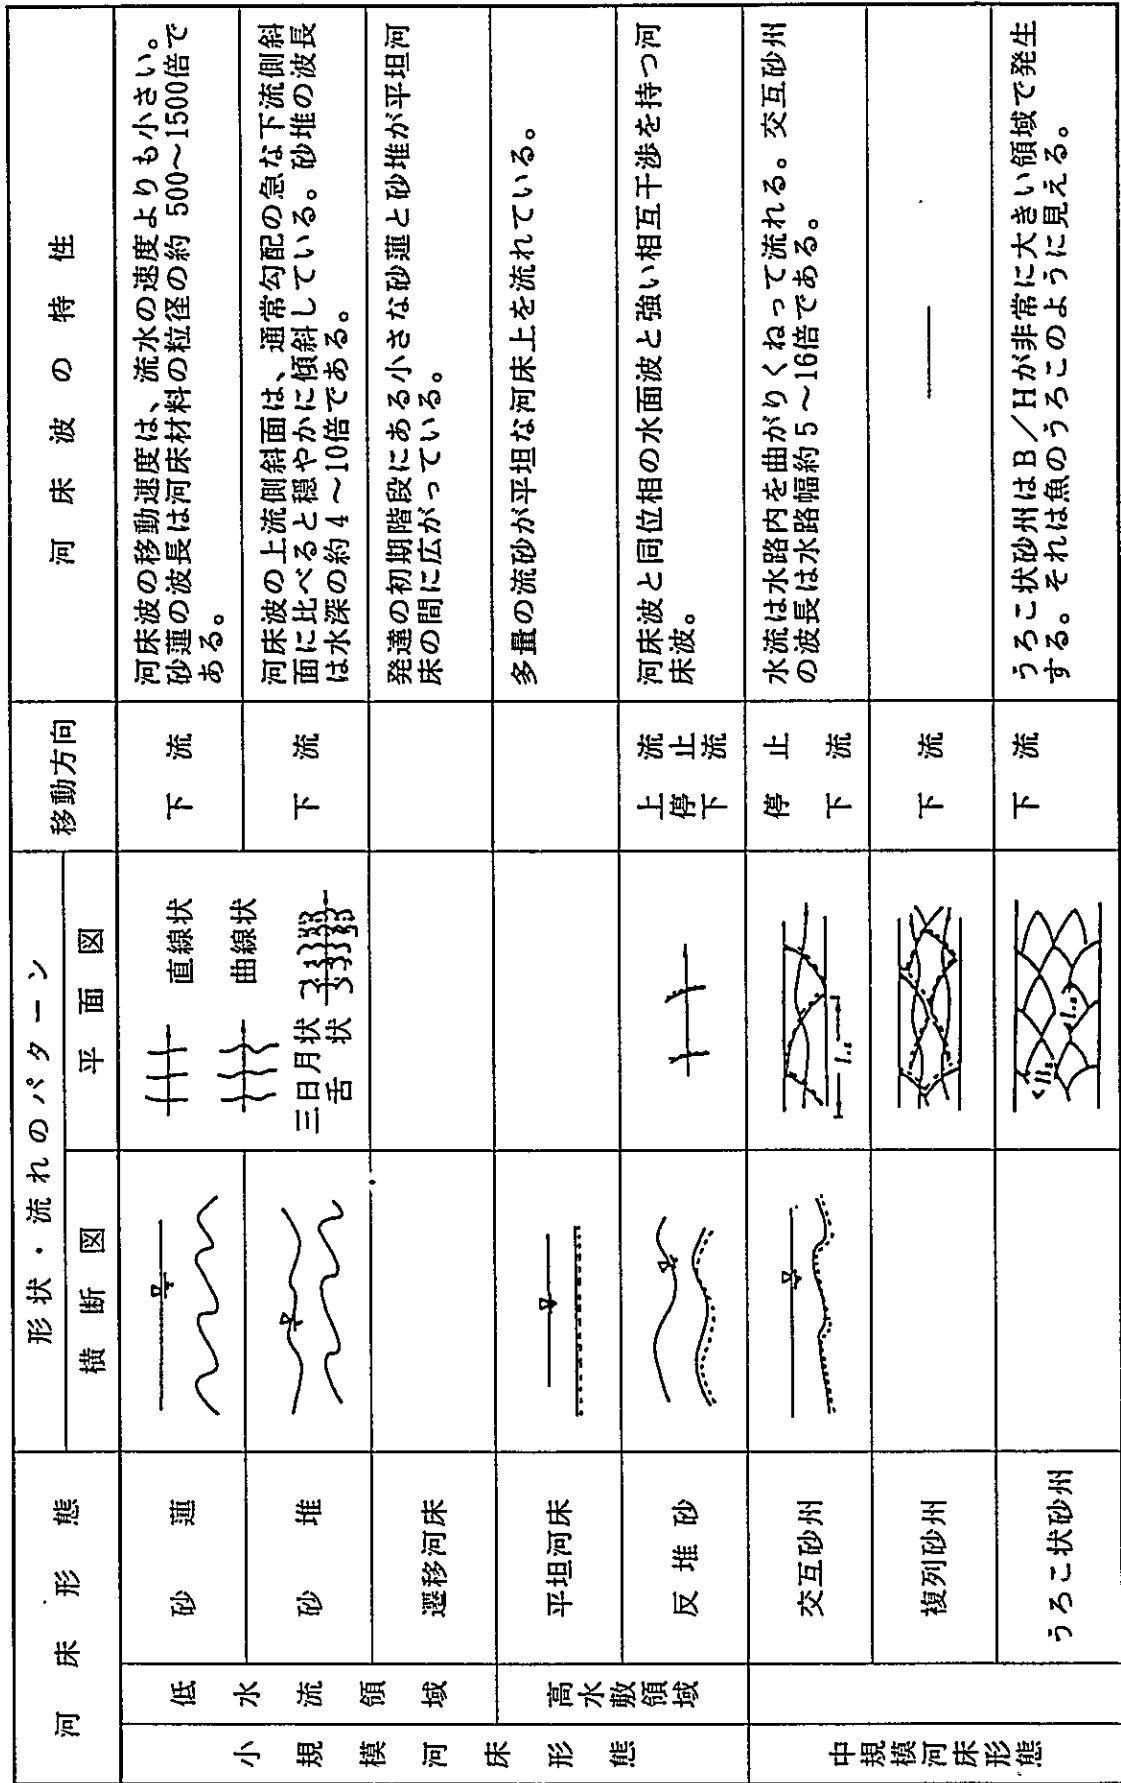 河床形態
形状・流れのパターン
移動方向
河床波の特性
横断図
平面図
小規模河床形態
低水流領域
砂蓮
直線状
曲線状
下流
河床波の移動速度は、流水の速度よりも小さい。
砂蓮の波長は河床材料の粒径の約 500～1500倍で
ある。
砂堆
三日月状
舌状
下流
河床波の上流側斜面は、通常勾配の急な下流側斜
面に比べると穏やかに傾斜している。砂堆の波長
は水深の約4～10倍である。
遷移河床
発達の初期階段にある小さな砂蓮と砂堆が平坦河
床の間に広がっている。
高水敷領域
平坦河床
多量の流砂が平坦な河床上を流れている。
反堆砂
上流
停止
下流
河床波と同位相の水面波と強い相互干渉を持つ河
床波。
中規模河床形態
交互砂州
停止
下流
水流は水路内を曲がりくねって流れる。交互砂州
の波長は水路幅約5～16倍である。
複列砂州
下流
うろこ状砂州
下流
うろこ状砂州はB／Hが非常に大きい領域で発生
する。それは魚のうろこのように見える。